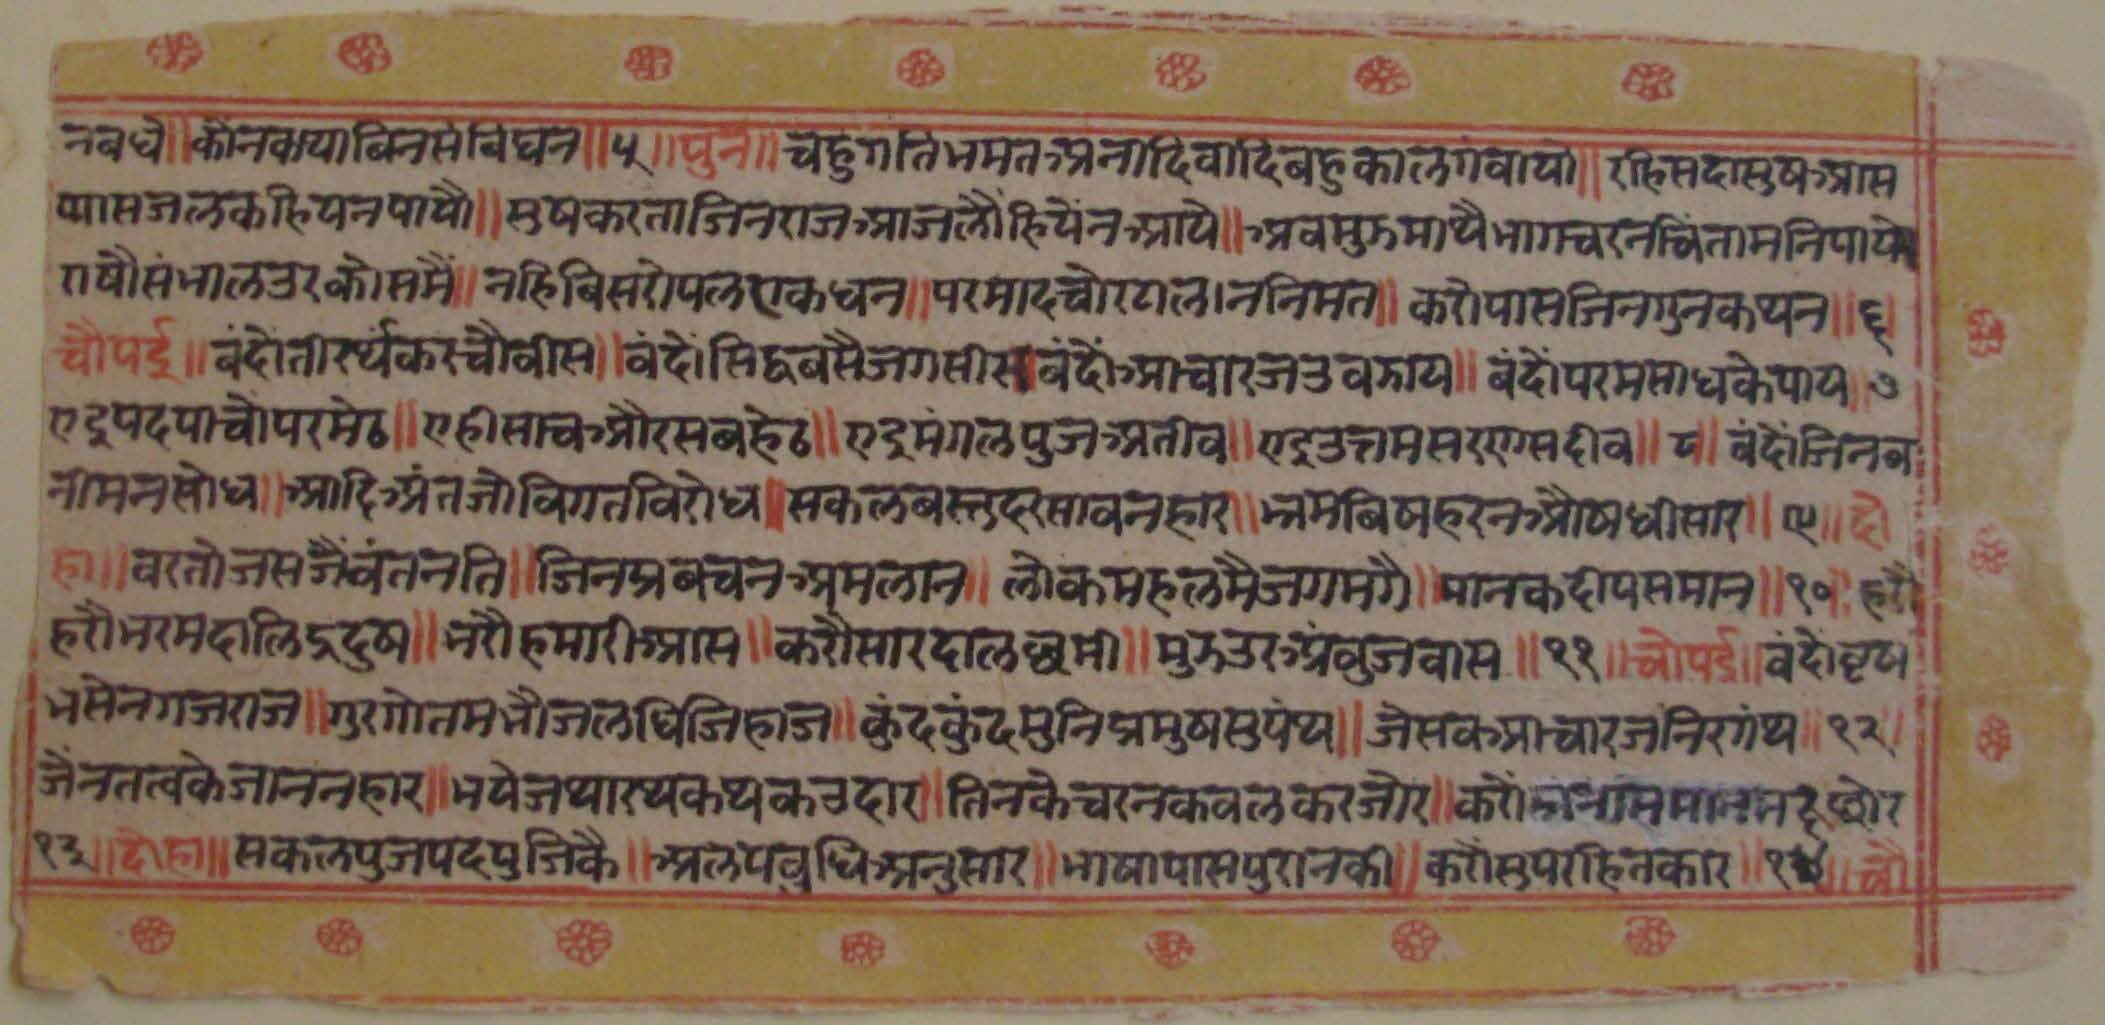 नबधे॥कौनकथाबिनसेबिघन॥५॥पुन॥चहुगतिभमतअनादिवादिबहुकालगंवायो॥रहिसदासुषआस
प्यासजलकहियनपायौ॥सुषकरताजिनराजआजलौंहियेंनआये॥अबमुझमाथैभागचरनचिंतामनिपाये
राषौसंभालउरकोसमैं॥नहिबिसरोपलएकधन॥परमादचोरटालननिमत॥करोपासजिनगुनकथन॥६।
चौपई॥बंदोंतीर्थंकरचौवीस॥वंदोंसिद्धबसैजगसीस॥वंदोंआचारजउवझाय॥बंदोंपरमसाधकेपाय॥७
एइपदपाचोंपरमेठ॥एहीसाचऔरसबहेठ॥एइमंगलपुजअतीव॥एइउत्तमसरएसदीव॥८॥वंदोंजिनब
नीमनसोध॥आदिअंतजोविगतविरोध॥सकलबस्तुदरसावनहार॥भ्रमबिषहरनऔषधीसार॥९॥दो
हा॥वरतोजसजैवंतनति॥जिनप्रबचनअमलान॥लोकमहलमैजगमगै॥मानकदीपसमान॥१०॥हरौ
हरौभरमदालिद्रदुष॥भरौहमारीआस॥करौसारदालछमी॥मुझउरअंबुजवास॥११॥चोपई॥वंदोंवृष
भसेनगजराज॥गुरगोतमभौजलधिजिहाज॥कुंदकुंदमुनिप्रमुषसुपंथ॥जेसबआचारजनिरगंथ॥१२॥
जैनतत्वकेजाननहार॥भयेजथारथकथकउदार॥तिनकेचरनकवलकरजोर॥करों
१३॥दोहा॥सकलपुजपदपुजिकै॥अलपबुधिअनुसार॥भाषापासपुरानकी॥करौंसुपरहितकार॥१४॥चौ